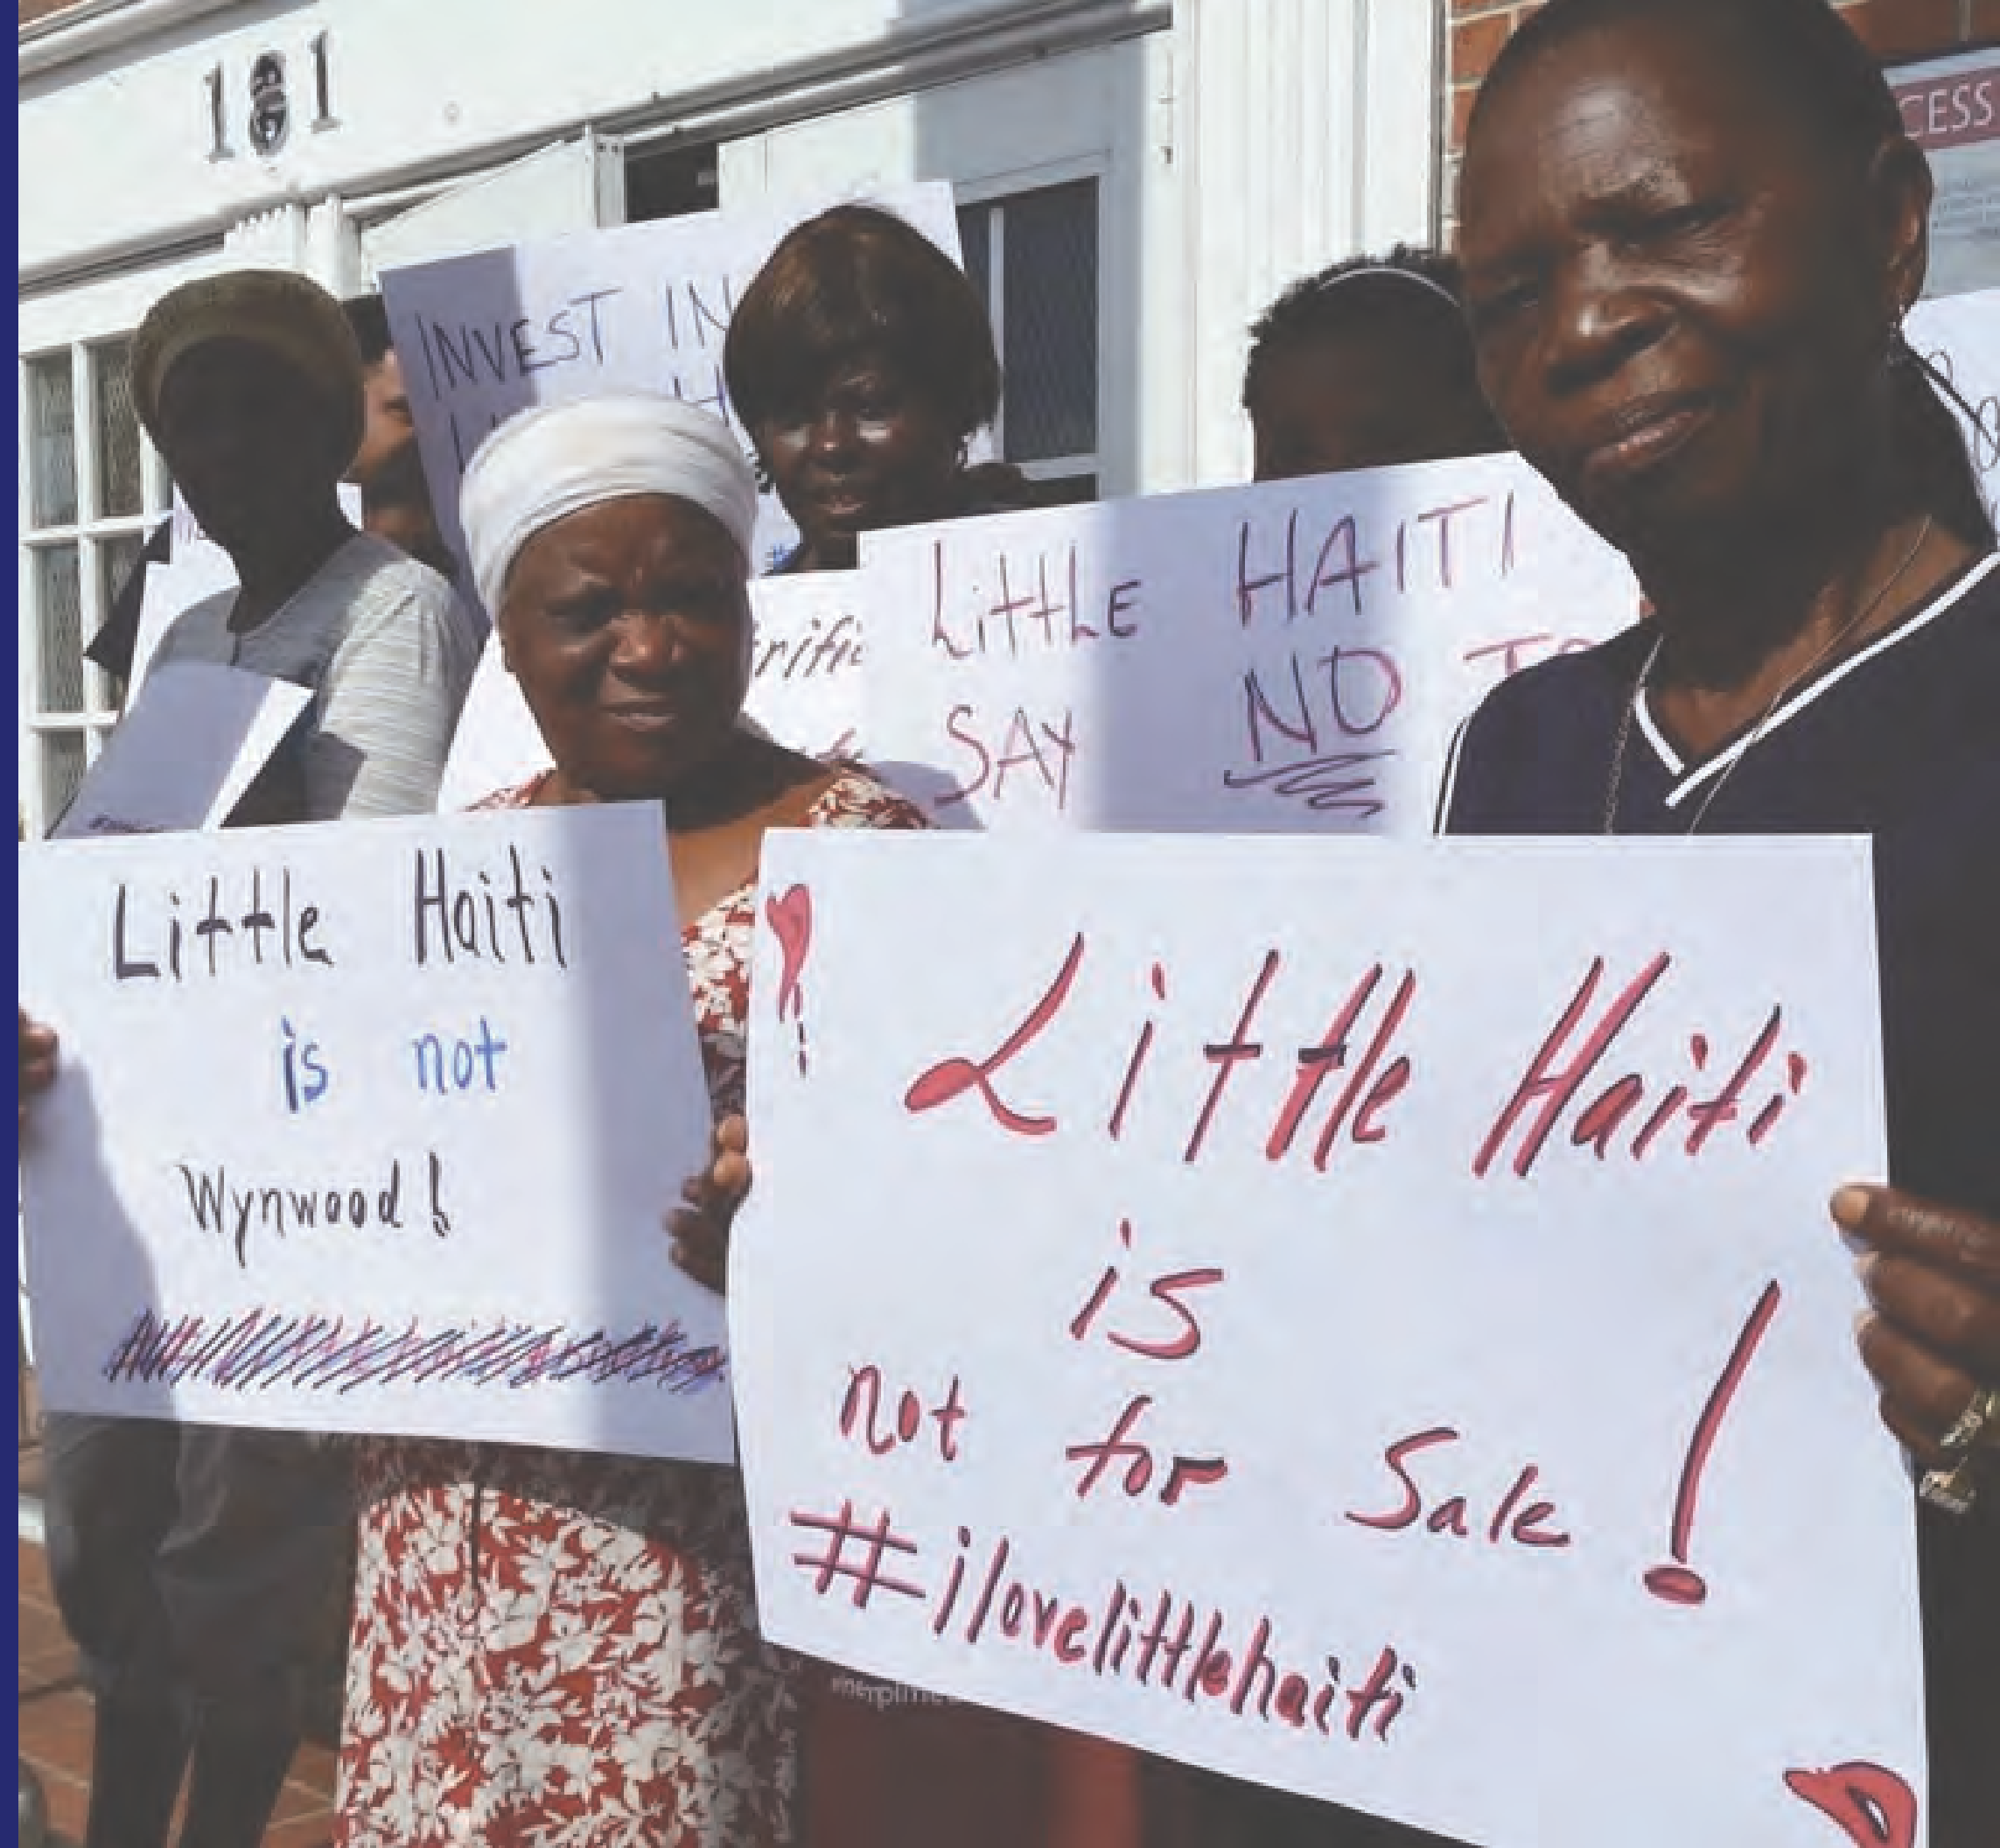 181
CESS
INVEST IN
rific
Little HAITI
SAY NO TO
Little Haiti
is not
Wynwood!
Little Haiti
is
not for Sale!
#ilovelittlehaiti